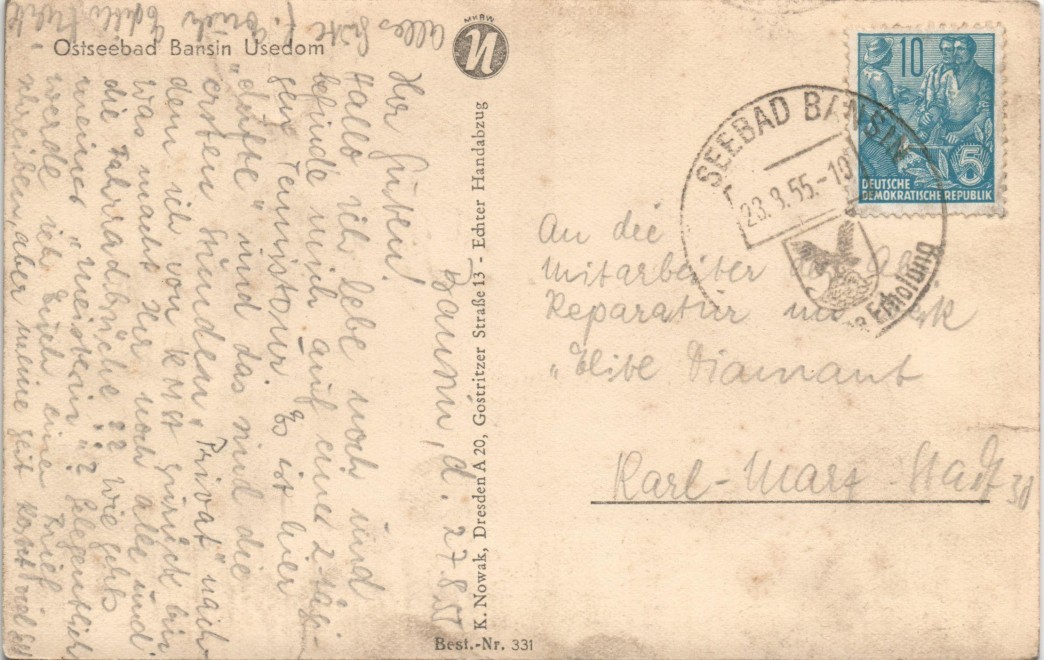 Ostseebad Bansin Usedom
MKBW
Bansin, d. 27.8.55
Ihr Guten!
Hallo ich lebe noch und
befinde mich auf einer 2 tägi-
gen Tennistour. Es ist hier
„dufte“ und das sind die
ersten Stunden „Privat“ nach-
dem ich von KMSt zurück bin
Was macht Ihr noch alle und
die Fahrradbrüche?? Wie gehts
meiner „Meisterin“? Gelegentlich
werde ich Euch einen Brief
schreiben, aber meine Zeit
Alles Gute
K. Nowak, Dresden A 20, Gostritzer Straße 13 - Echter Handabzug
Best.-Nr. 331
10
5
DEUTSCHE
DEMOKRATISCHE REPUBLIK
SEEBAD BANSIN
23.8.55.-10
Erholung
An die
Mitarbeiter
Reparatur
„Elite Diamant
Karl-Marx-Stadt 30